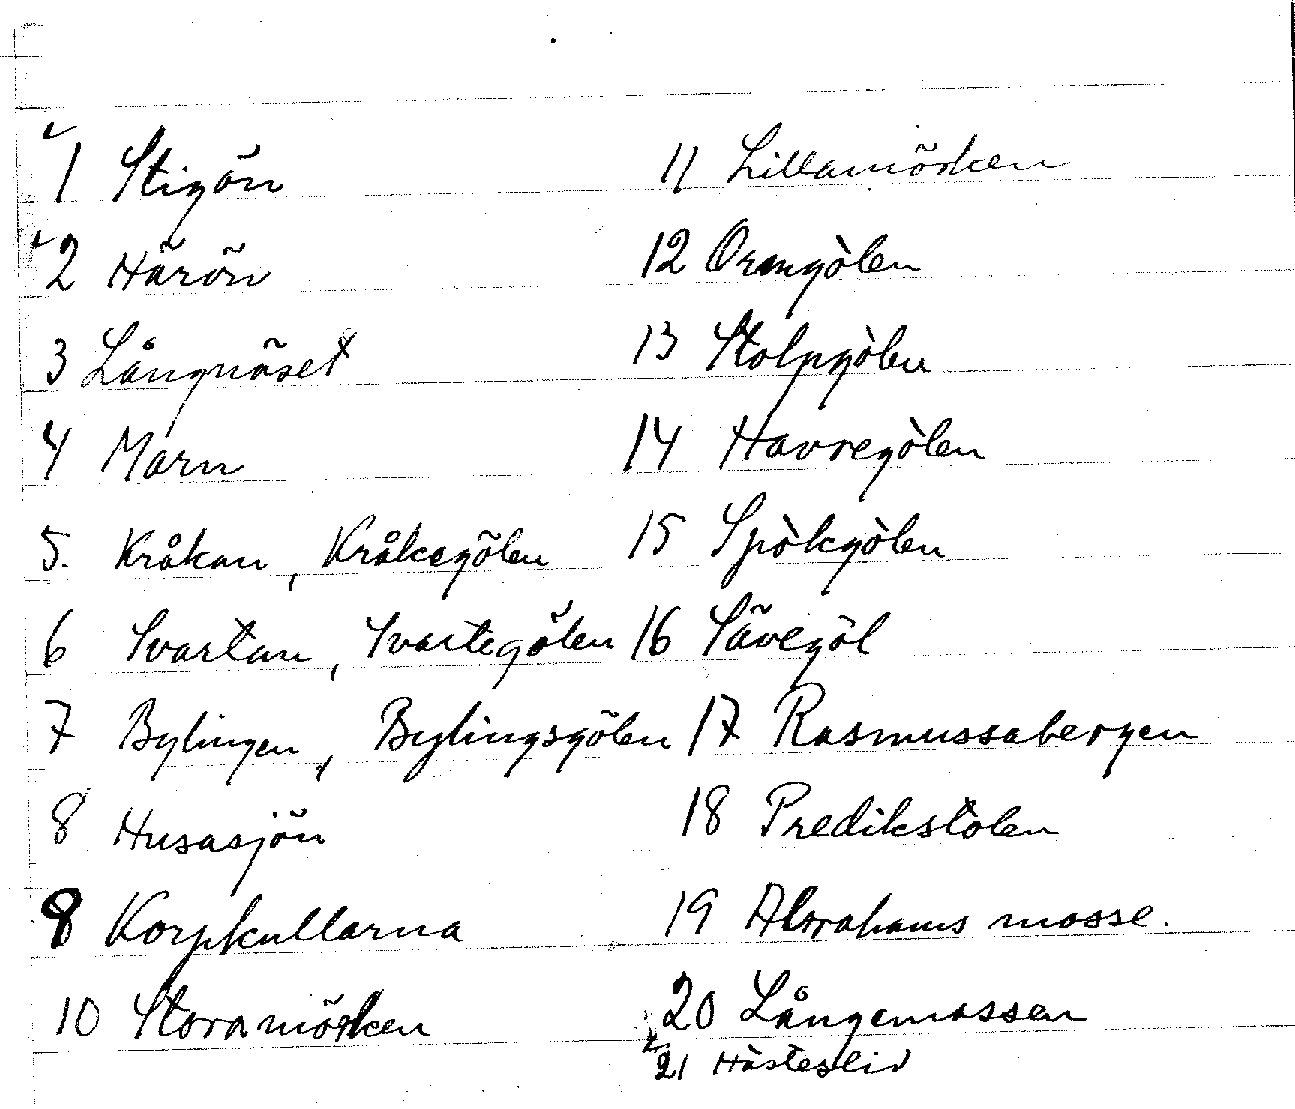 1 Stigön
2 Härön
3 Långnäset
4 Marn
5. Kråkan, Kråkegölen
6 Svartan, Svartegölen
7 Bylingen, Bylingsgölen
8 Husasjön
8 Korpkullarna
10 Storamörken
11 Lillamörken
12 Ormgölen
13 Stolpgölen
14 Havregölen
15 Spökgölen
16 Sävegöl
17 Rasmussabergen
18 Predikstolen
19 Abrahams mosse.
20 Långemossen
21 Hästeslid